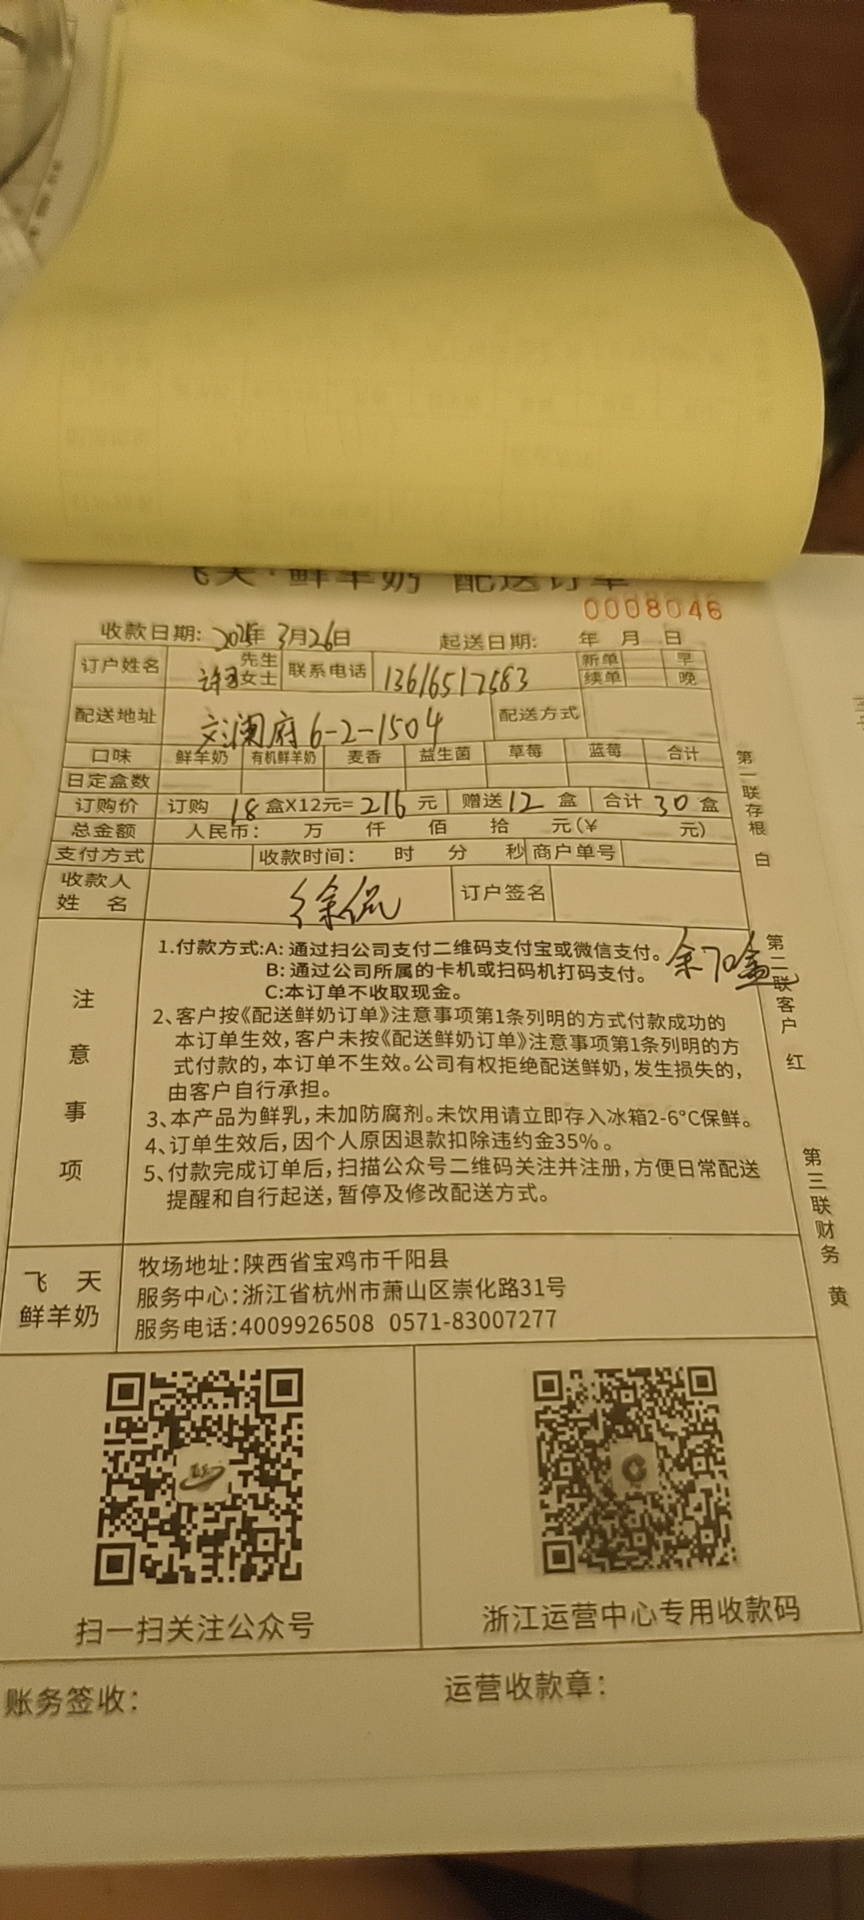 飞天·鲜羊奶 配送订单
0008046
收款日期: 3月26日 起送日期: 年 月 日
订户姓名 先生 女士 联系电话 13616517583 新单 早
续单 晚
配送地址 文澜府6-2-1504 配送方式
口味 鲜羊奶 有机鲜羊奶 麦香 益生菌 草莓 蓝莓 合计
日定盒数
订购价 订购 18 盒X12元= 216 元 赠送 12 盒 合计 30 盒
总金额 人民币: 万 仟 佰 拾 元(¥ 元)
支付方式 收款时间: 时 分 秒 商户单号
收款人
姓 名 徐侃 订户签名
注意事项
1.付款方式:A: 通过扫公司支付二维码支付宝或微信支付。
余70盒
B: 通过公司所属的卡机或扫码机打码支付。
C:本订单不收取现金。
2、客户按《配送鲜奶订单》注意事项第1条列明的方式付款成功的
本订单生效,客户未按《配送鲜奶订单》注意事项第1条列明的方
式付款的,本订单不生效。公司有权拒绝配送鲜奶,发生损失的,
由客户自行承担。
3、本产品为鲜乳,未加防腐剂。未饮用请立即存入冰箱2-6°C保鲜。
4、订单生效后,因个人原因退款扣除违约金35%。
5、付款完成订单后,扫描公众号二维码关注并注册,方便日常配送
提醒和自行起送,暂停及修改配送方式。
第一联存根 白
第二联客户 红
第三联财务 黄
飞 天
鲜羊奶
牧场地址:陕西省宝鸡市千阳县
服务中心:浙江省杭州市萧山区崇化路31号
服务电话:4009926508 0571-83007277
扫一扫关注公众号
浙江运营中心专用收款码
账务签收: 运营收款章: